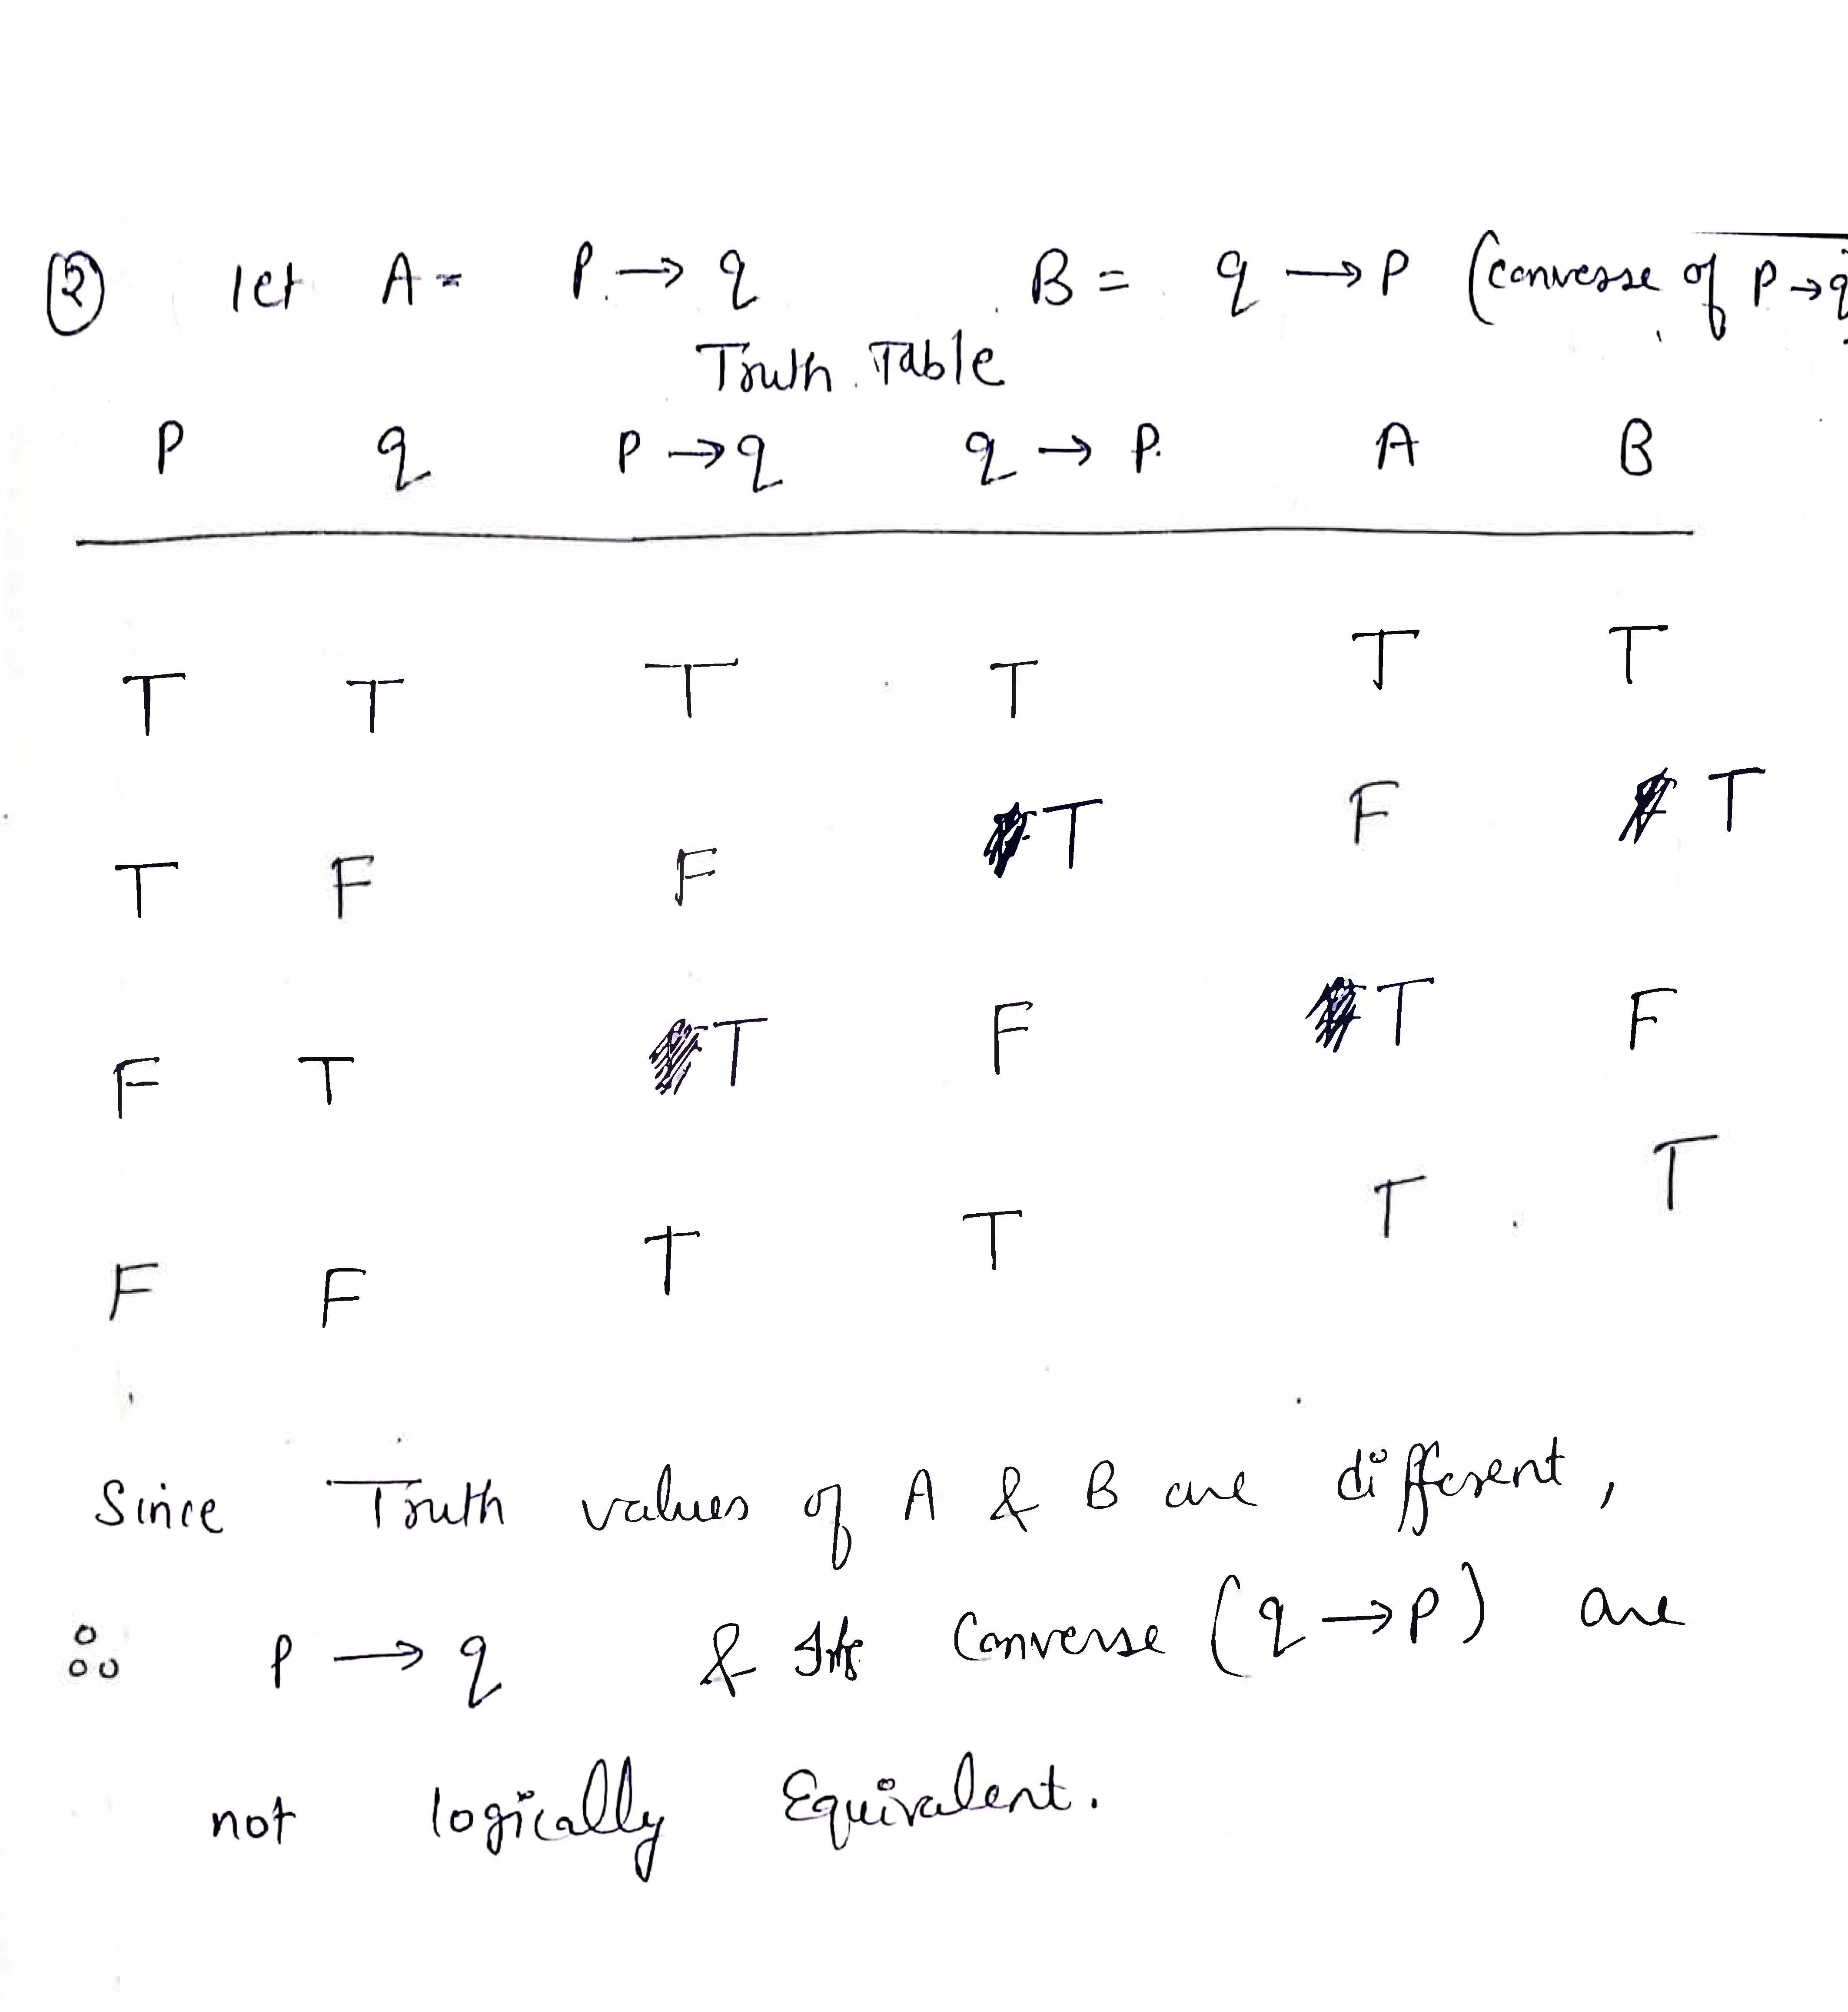 ② let A = P → q B = q → P (converse of P → q
Truth Table
P q P → q q → P. A B
T T T T T T
T F F T F T
F T T F T F
F F T T T T
Since Truth values of A & B are different,
∴ P → q & Its Converse (q → P) are
not logically Equivalent.